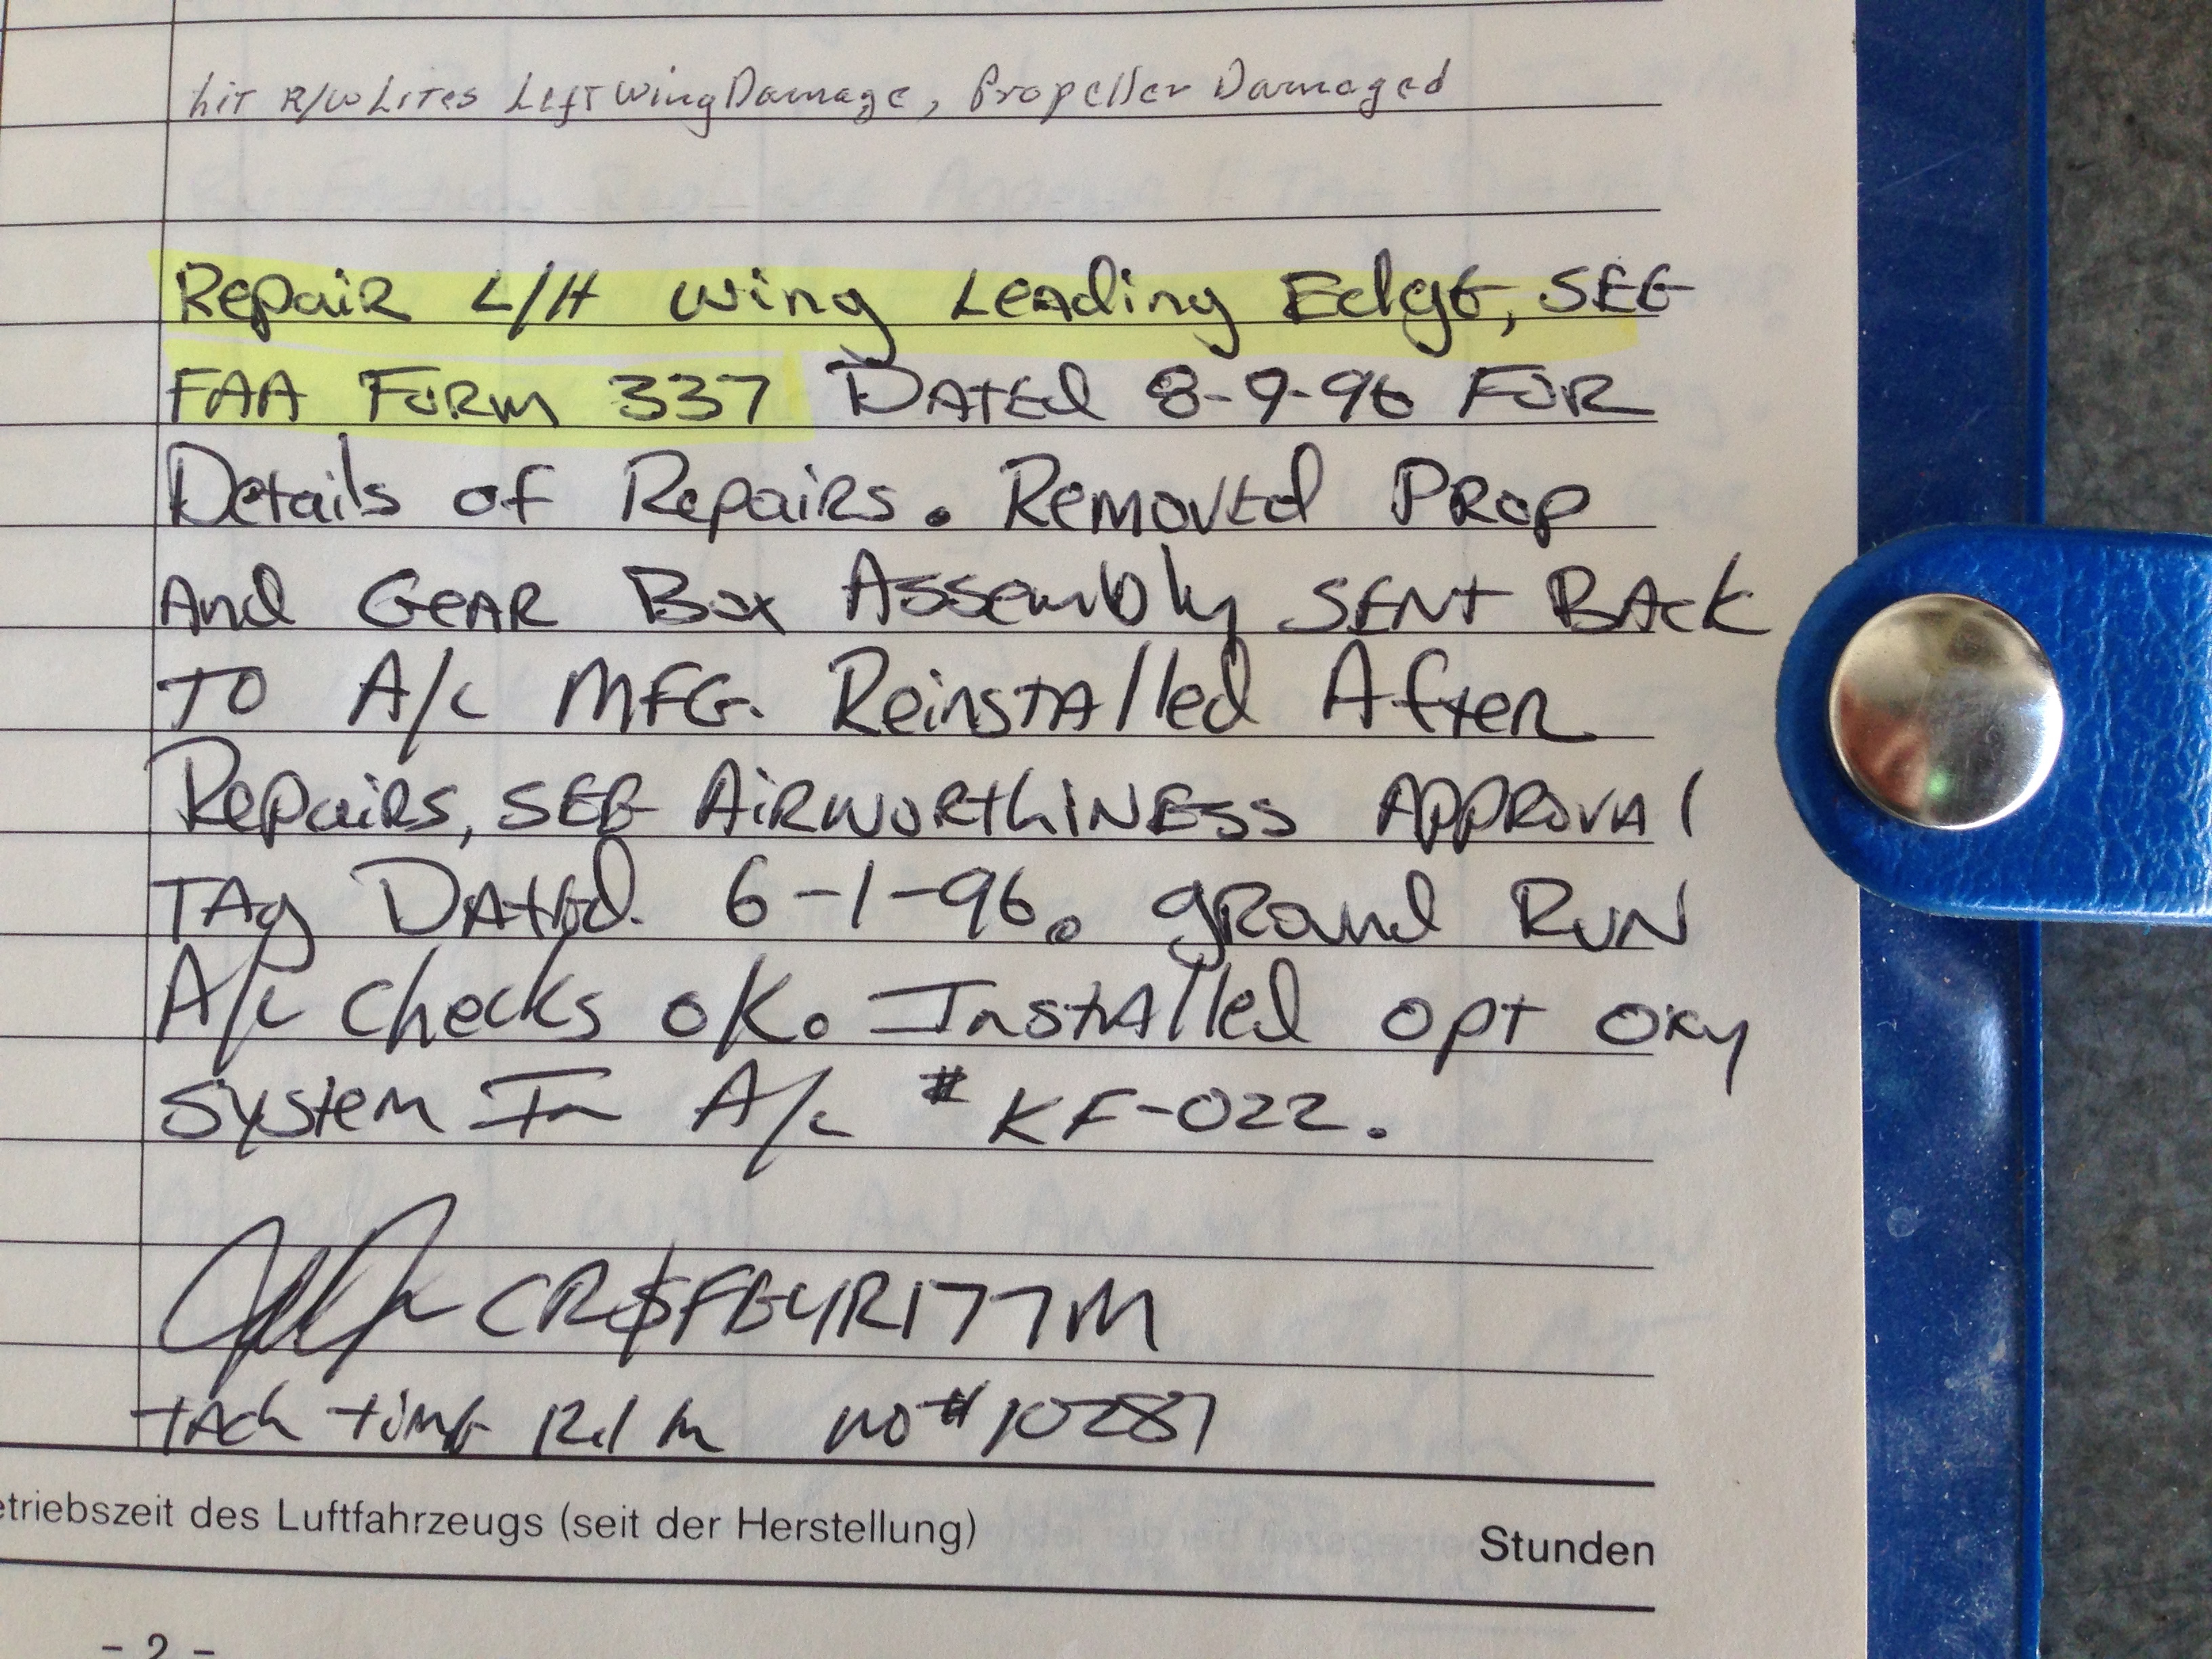 hit R/W Lites Left Wing Damage, Propeller Damaged
Repair L/H Wing Leading Edge, SEE
FAA Form 337 Dated 8-9-96 For
Details of Repairs. Removed Prop
And Gear Box Assembly SENT BACK
TO A/C MFG. Reinstalled After
Repairs, SEE AIRWORTHINESS APPROVAl
TAg Dated 6-1-96. ground RUN
A/C checks OK. Installed opt oxy
system In A/C # KF-022.
CR$FB4R177M
tach time no # 10287
etriebszeit des Luftfahrzeugs (seit der Herstellung)
Stunden
- 2 -